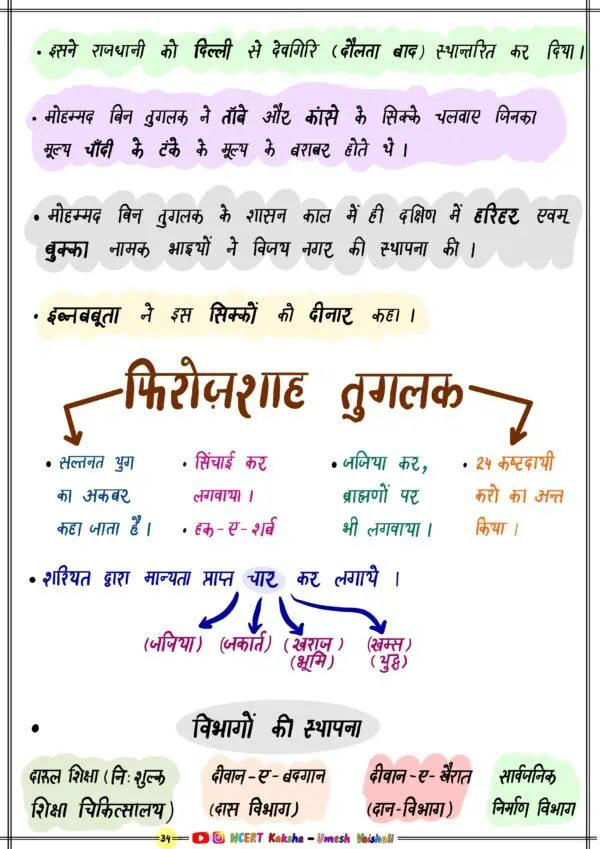 • इसने राजधानी को दिल्ली से देवगिरि (दौलता बाद) स्थान्तरित कर दिया।
• मोहम्मद बिन तुगलक ने ताँबे और कांसे के सिक्के चलवाए जिनका
मूल्य चाँदी के टंके के मूल्य के बराबर होते थे।
• मोहम्मद बिन तुगलक के शासन काल में ही दक्षिण में हरिहर एवम्
बुक्का नामक भाइयों ने विजय नगर की स्थापना की।
• इब्नबबूता ने इस सिक्कों को दीनार कहा।
फिरोज़शाह तुगलक
• सल्तनत युग
का अकबर
कहा जाता है।
• सिंचाई कर
लगवाया।
• हक-ए-शर्ब
• जजिया कर,
ब्राह्मणों पर
भी लगवाया।
• 24 कष्टदायी
करो का अन्त
किया।
• शरियत द्वारा मान्यता प्राप्त चार कर लगाये।
(जजिया) (जकार्त) (खराज) (खम्स)
(भूमि) (युद्ध)
• विभागों की स्थापना
दारूल शिक्षा (निःशुल्क
शिक्षा चिकित्सालय)
दीवान-ए-बदगान
(दास विभाग)
दीवान-ए-खैरात
(दान-विभाग)
सार्वजनिक
निर्माण विभाग
34 NCERT Kaksha - Umesh Vaishali